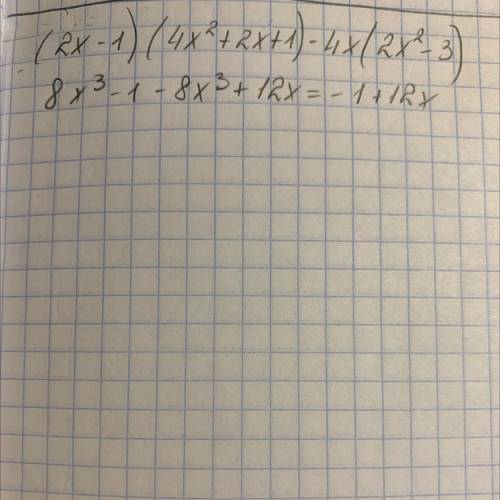 (2x-1)(4x²+2x+1)-4x(2x²-3)
8x³-1-8x³+12x=-1+12x